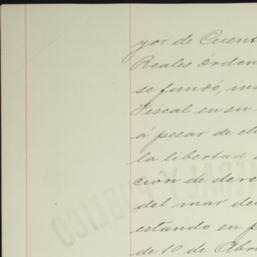 yor de Cuent
Reales Orden
se fundó, ins
Fiscal en su
á pesar de el
la libertad
ción de dere
del mar de
estando en p
de 10 de Abr